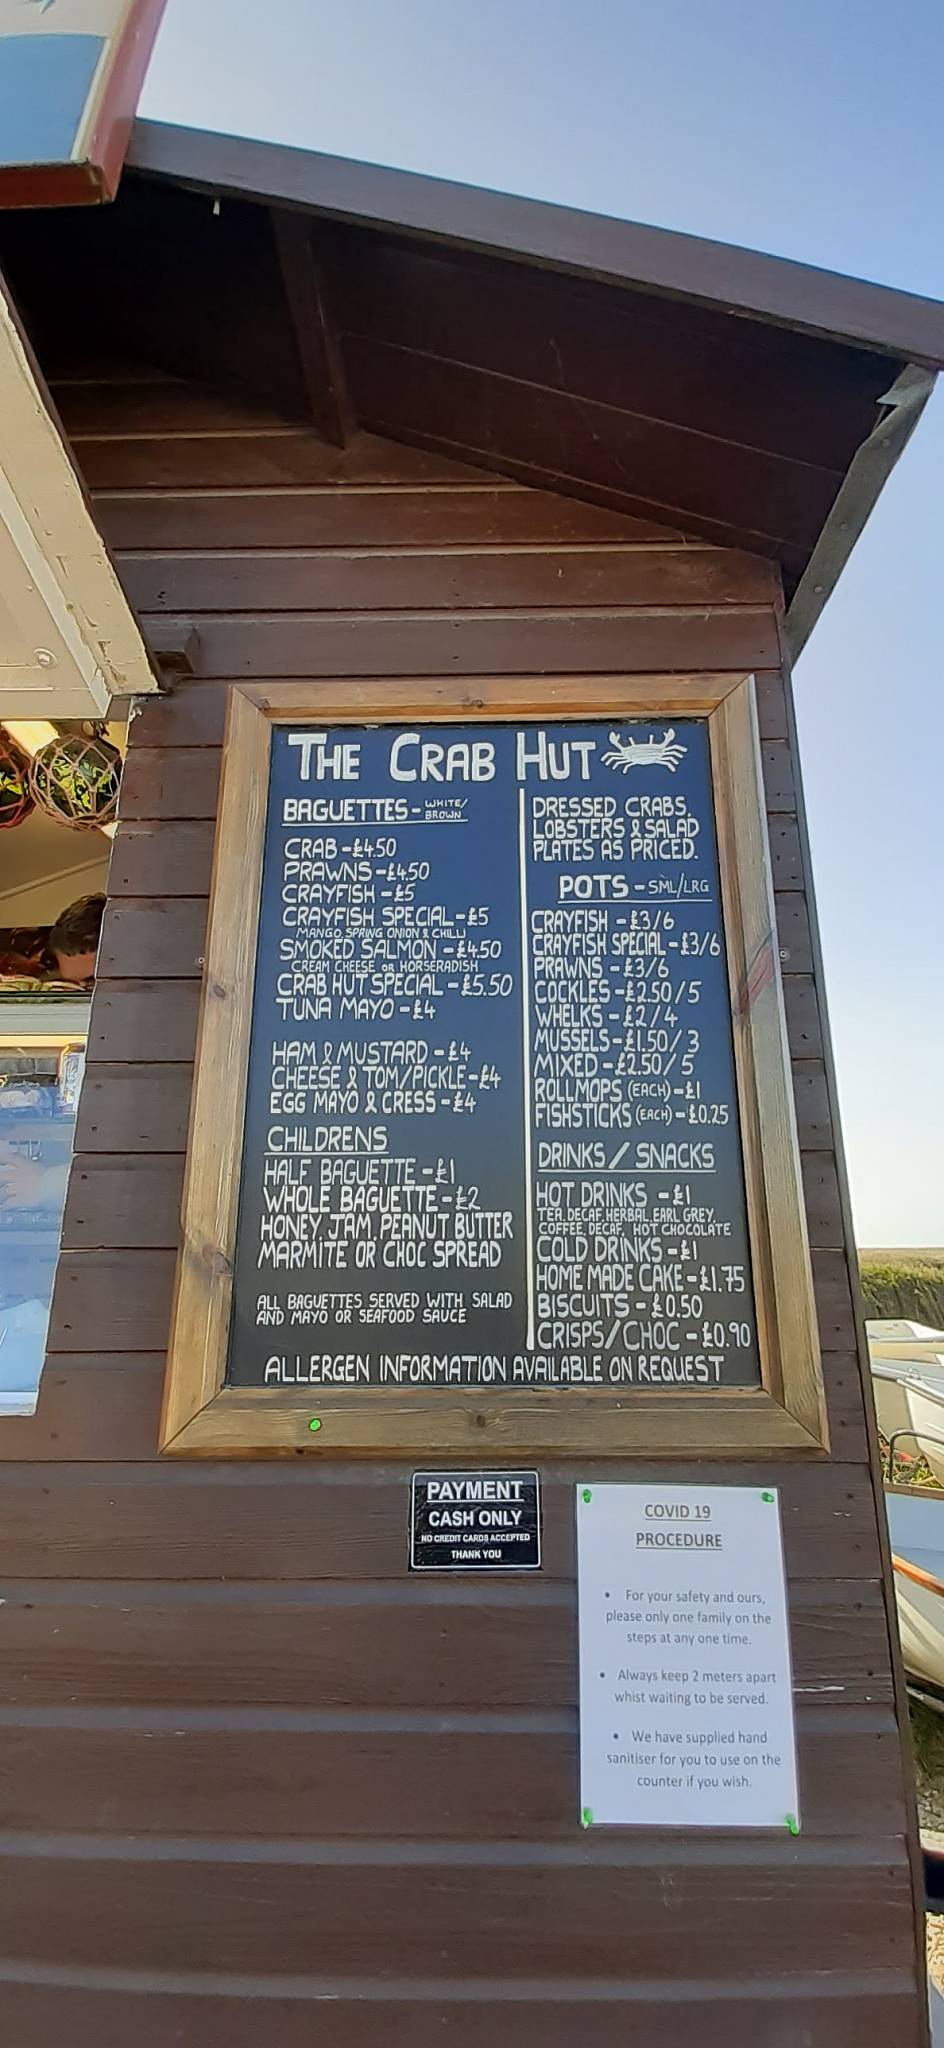 THE CRAB HUT
BAGUETTES - WHITE/
BROWN
CRAB - £4.50
PRAWNS - £4.50
CRAYFISH - £5
CRAYFISH SPECIAL - £5
MANGO, SPRING ONION & CHILLI
SMOKED SALMON - £4.50
CREAM CHEESE OR HORSERADISH
CRAB HUT SPECIAL - £5.50
TUNA MAYO - £4
HAM & MUSTARD - £4
CHEESE & TOM/PICKLE - £4
EGG MAYO & CRESS - £4
CHILDRENS
HALF BAGUETTE - £1
WHOLE BAGUETTE - £2
HONEY, JAM, PEANUT BUTTER
MARMITE OR CHOC SPREAD
ALL BAGUETTES SERVED WITH SALAD
AND MAYO OR SEAFOOD SAUCE
DRESSED CRABS,
LOBSTERS & SALAD
PLATES AS PRICED.
POTS - SML/LRG
CRAYFISH - £3/6
CRAYFISH SPECIAL - £3/6
PRAWNS - £3/6
COCKLES - £2.50/5
WHELKS - £2/4
MUSSELS - £1.50/3
MIXED - £2.50/5
ROLLMOPS (EACH) - £1
FISHSTICKS (EACH) - £0.25
DRINKS/SNACKS
HOT DRINKS - £1
TEA, DECAF, HERBAL, EARL GREY,
COFFEE, DECAF, HOT CHOCOLATE
COLD DRINKS - £1
HOME MADE CAKE - £1.75
BISCUITS - £0.50
CRISPS/CHOC - £0.90
ALLERGEN INFORMATION AVAILABLE ON REQUEST
PAYMENT
CASH ONLY
NO CREDIT CARDS ACCEPTED
THANK YOU
COVID 19
PROCEDURE
• For your safety and ours,
please only one family on the
steps at any one time.
• Always keep 2 meters apart
whist waiting to be served.
• We have supplied hand
sanitiser for you to use on the
counter if you wish.